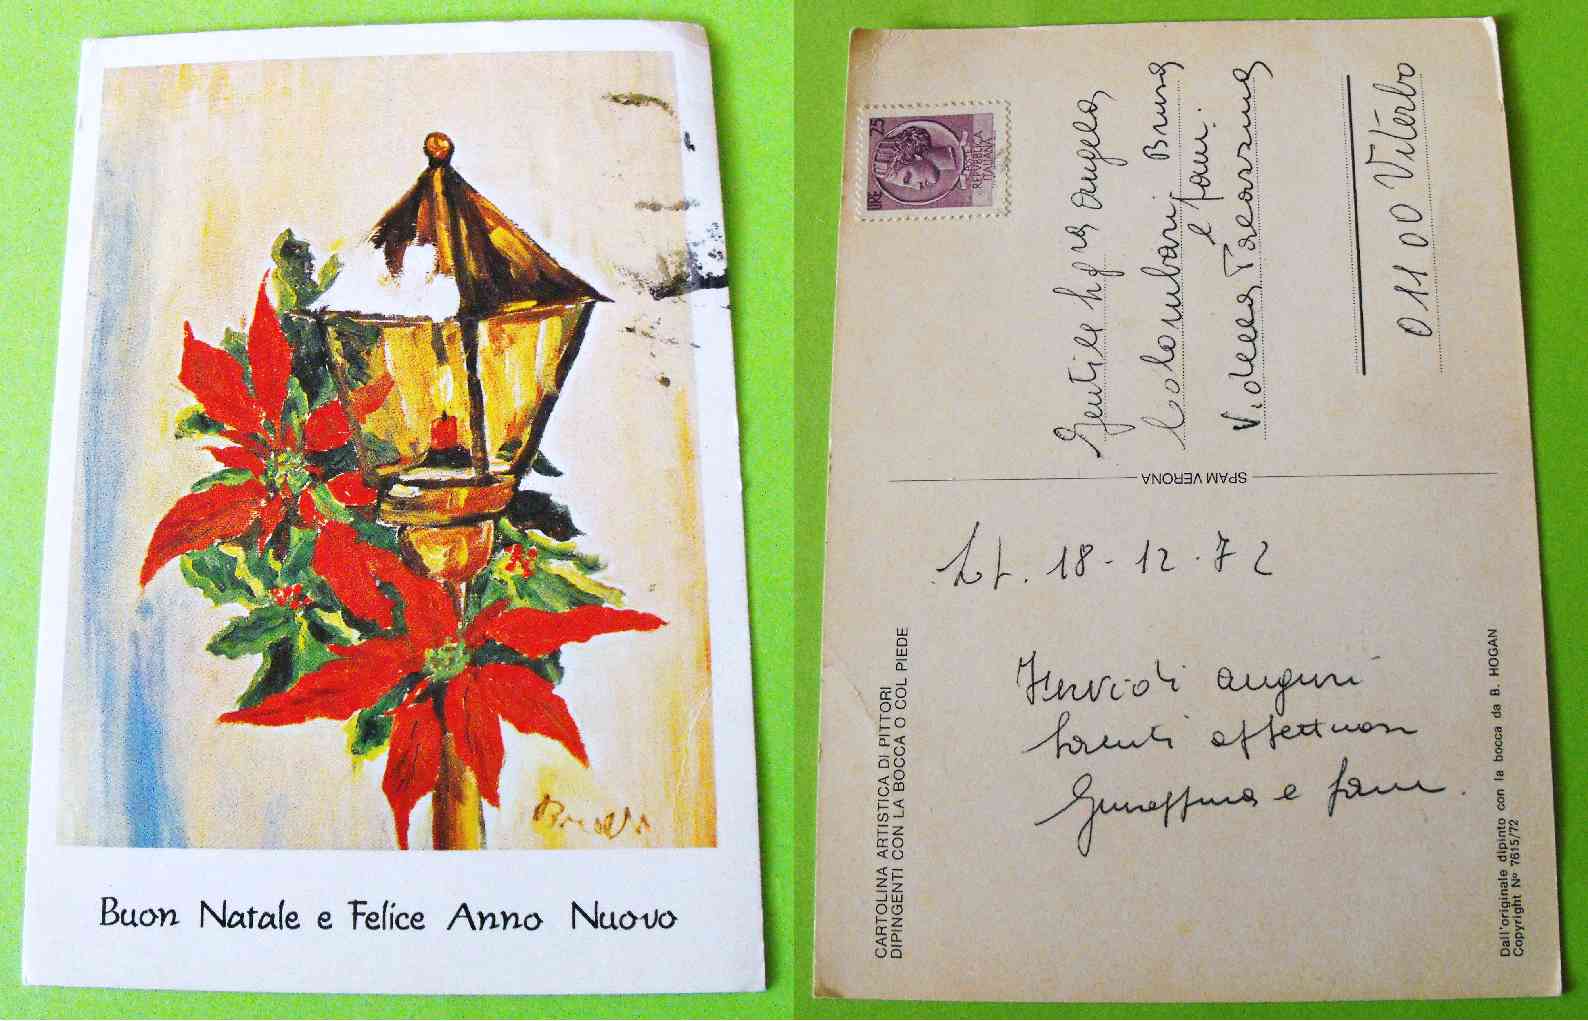 Buon Natale e Felice Anno Nuovo
LIRE 25
POSTE
REPUBBLICA
ITALIANA
Gentile Angela
Colombari Bruna
e fam.
01100 Viterbo
SPAM VERONA
18-12-72
Fervidi auguri
saluti affettuosi
Giuseppina e fam.
CARTOLINA ARTISTICA DI PITTORI
DIPINGENTI CON LA BOCCA O COL PIEDE
Dall'originale dipinto con la bocca da B. HOGAN
Copyright Nº 7615/72